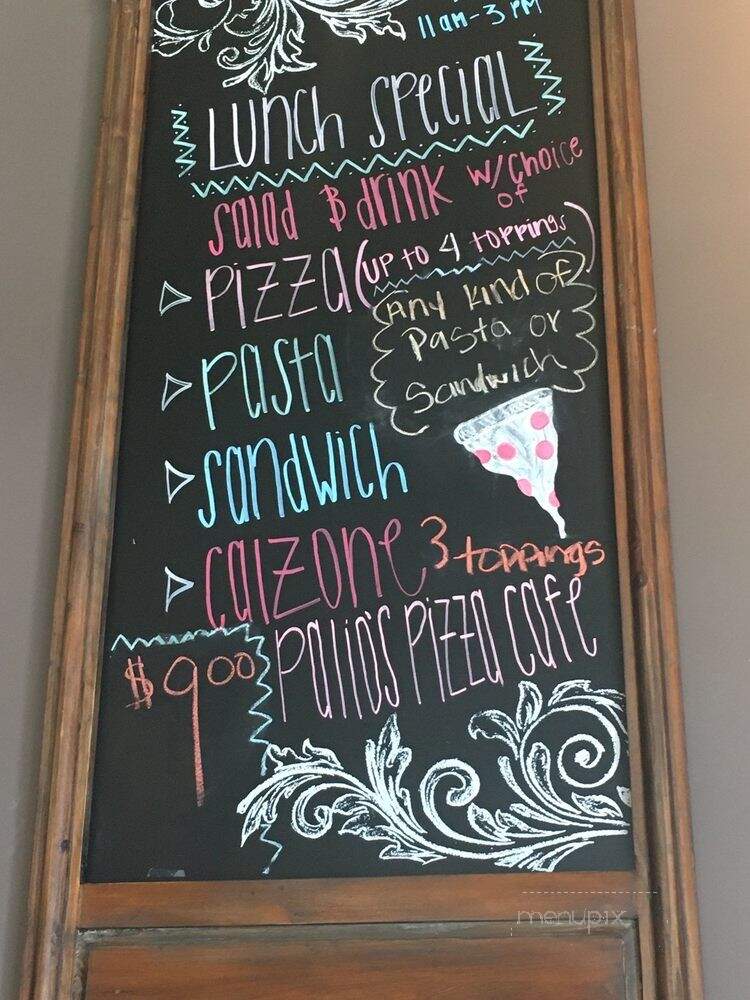 11am-3pm
Lunch Special
Salad & drink w/choice of
Pizza (up to 4 toppings)
Any kind of
Pasta or
Sandwich
pasta
sandwich
calzone 3 toppings
Palio's Pizza Cafe
$9.00
menupix